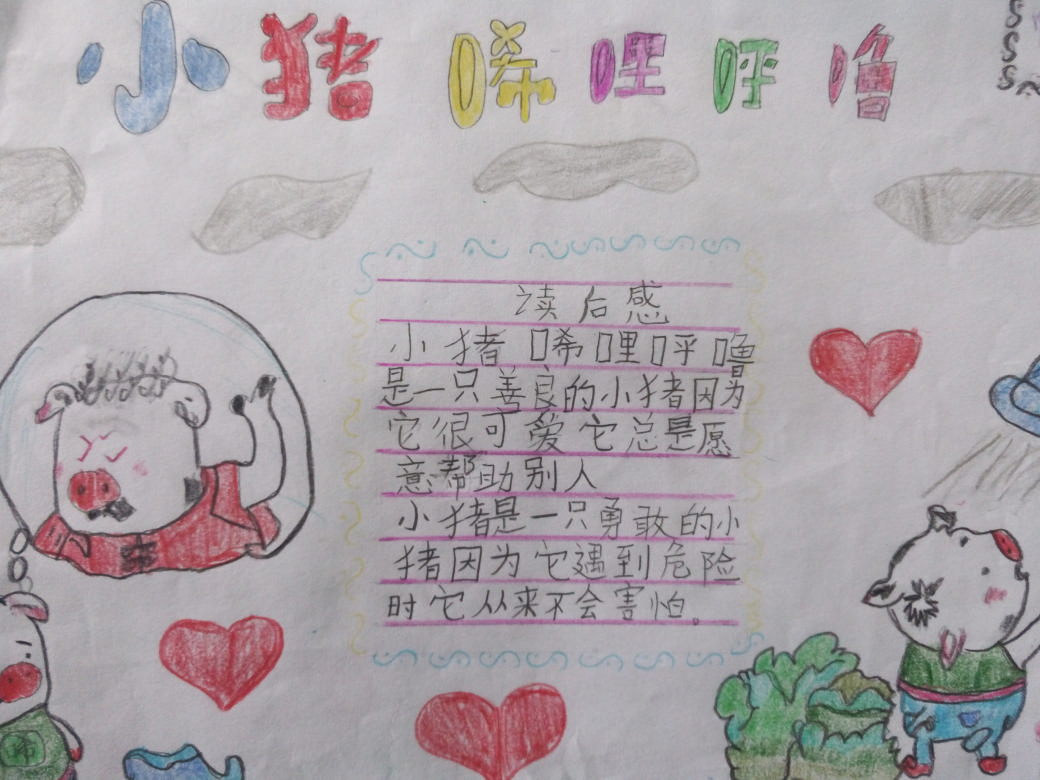 小猪唏哩呼噜
读后感
小猪唏哩呼噜
是一只善良的小猪因为
它很可爱它总是愿
意帮助别人
小猪是一只勇敢的小
猪因为它遇到危险
时它从来不会害怕。